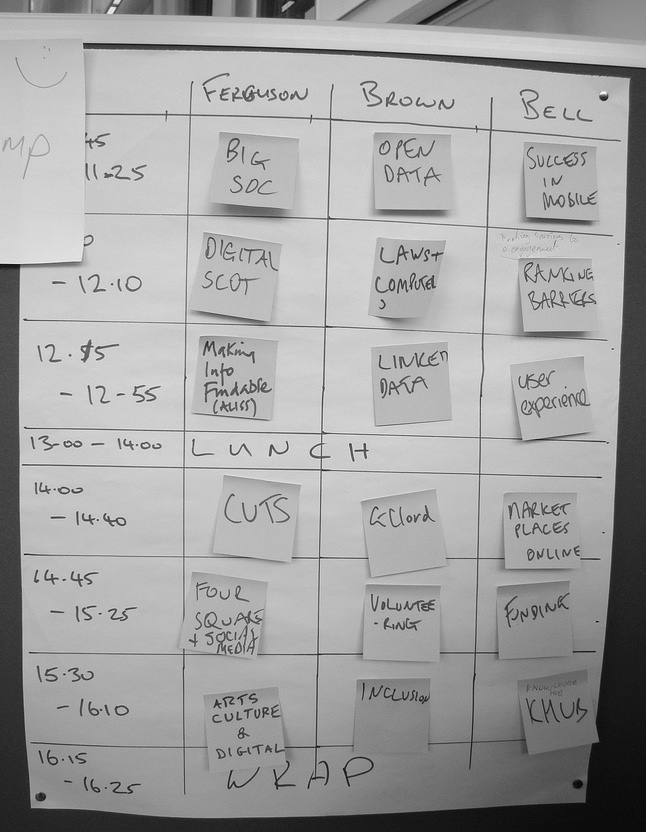 MP
FERGUSON BROWN BELL
45
11.25
BIG
SOC
OPEN
DATA
SUCCESS
IN
MOBILE
- 12.10
DIGITAL
SCOT
LAWS +
COMPUTER
RANKING
BARRIERS
12.15
- 12-55
Making
Info
Findable
(ALISS)
LINKED
DATA
user
experience
13-00 - 14.00 LUNCH
14.00
- 14.40
CUTS
GClord
MARKET
PLACES
ONLINE
14.45
- 15.25
FOUR
SQUARE
+ SOCIAL
MEDIA
VOLUNTEE
-RING
FUNDING
15.30
- 16.10
ARTS
CULTURE
&
DIGITAL
INCLUSION
KNOWLEDGE
HUB
KHUB
16.15
- 16.25
WRAP